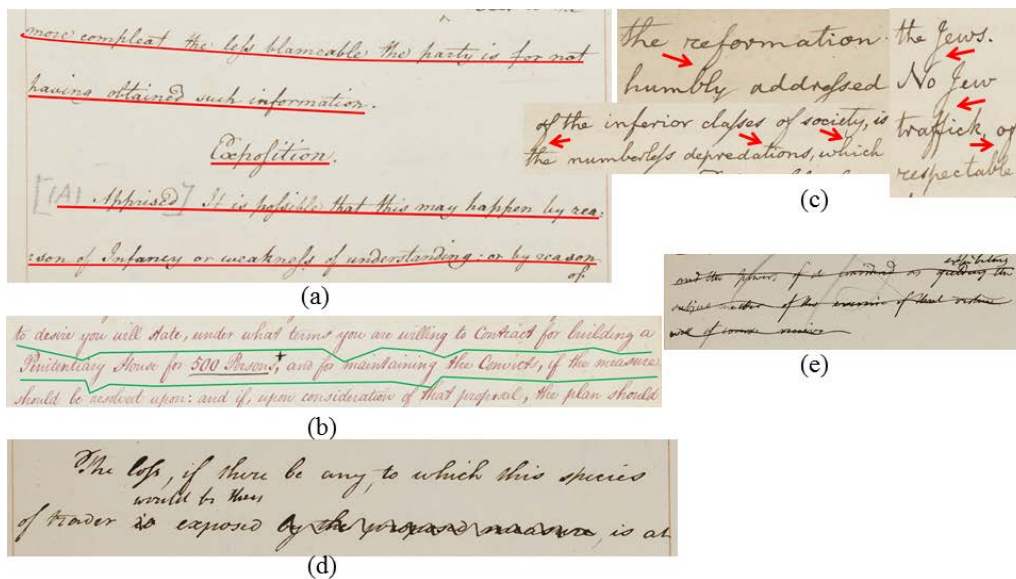 more compleat the less blameable the party is for not
having obtained such information.
Exposition.
[(A) Apprised] It is possible that this may happen by rea:
:son of Infancy or weakness of understanding: or by reason
of
(a)
to desire you will state, under what terms you are willing to Contract for building a
Penitentiary House for 500 Persons,+ and for maintaining the Convicts, if the measure
should be resolved upon: and if, upon consideration of that proposal, the plan should
(b)
the reformation
humbly addressed
of the inferior classes of society, is
the numberless depredations, which
the Jews.
No Jew
traffick, of
respectable
(c)
The loss, if there be any, to which this species
would be then
of trader is exposed by the proposed measure, is at
(d)
exhibiting
and the of as the
subject matter of the exercise of that
will of course receive
(e)